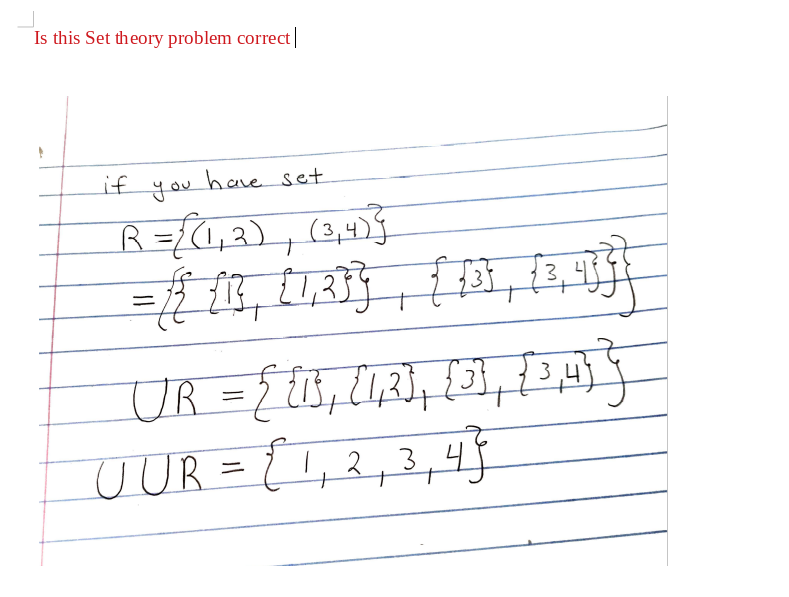 Is this Set theory problem correct
if you have set
R = {(1,2) , (3,4)}
= {{ {1}, {1,2}} , { {3} , {3,4}}}
∪R = { {1}, {1,2}, {3}, {3,4} }
∪∪R = { 1, 2, 3, 4}